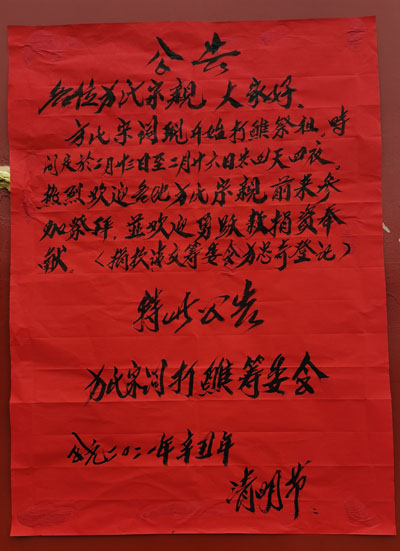 公告
各位方氏宗親 大家好、
方氏宗祠現开始打醮祭祖，時
间定於二月廿三日至二月廿六日共四天四夜。
热烈欢迎各地方氏宗親前来参
加祭拜，並欢迎踴跃捐資奉
献。（捐款请交筹委会方志奇登记）
特此公告
方氏宗祠打醮籌委会
公元二〇二一年辛丑年
清明节